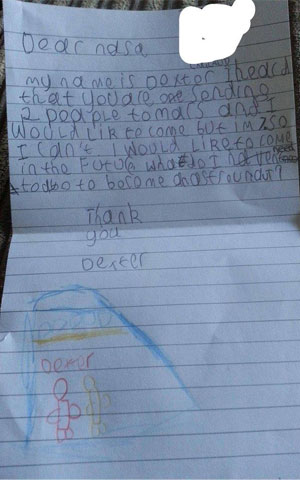 Dear nasa
my name is Dexter I heard
that you are sending
2 people to mars and I
would lik to come but im 7 so
I can't I would like to come
in the future what do I
to do to become an astrounaut?
Thank
you
Dexter
Dexter